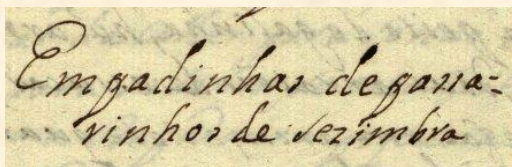 Empadinhas de passa=
rinhos de sezimbra